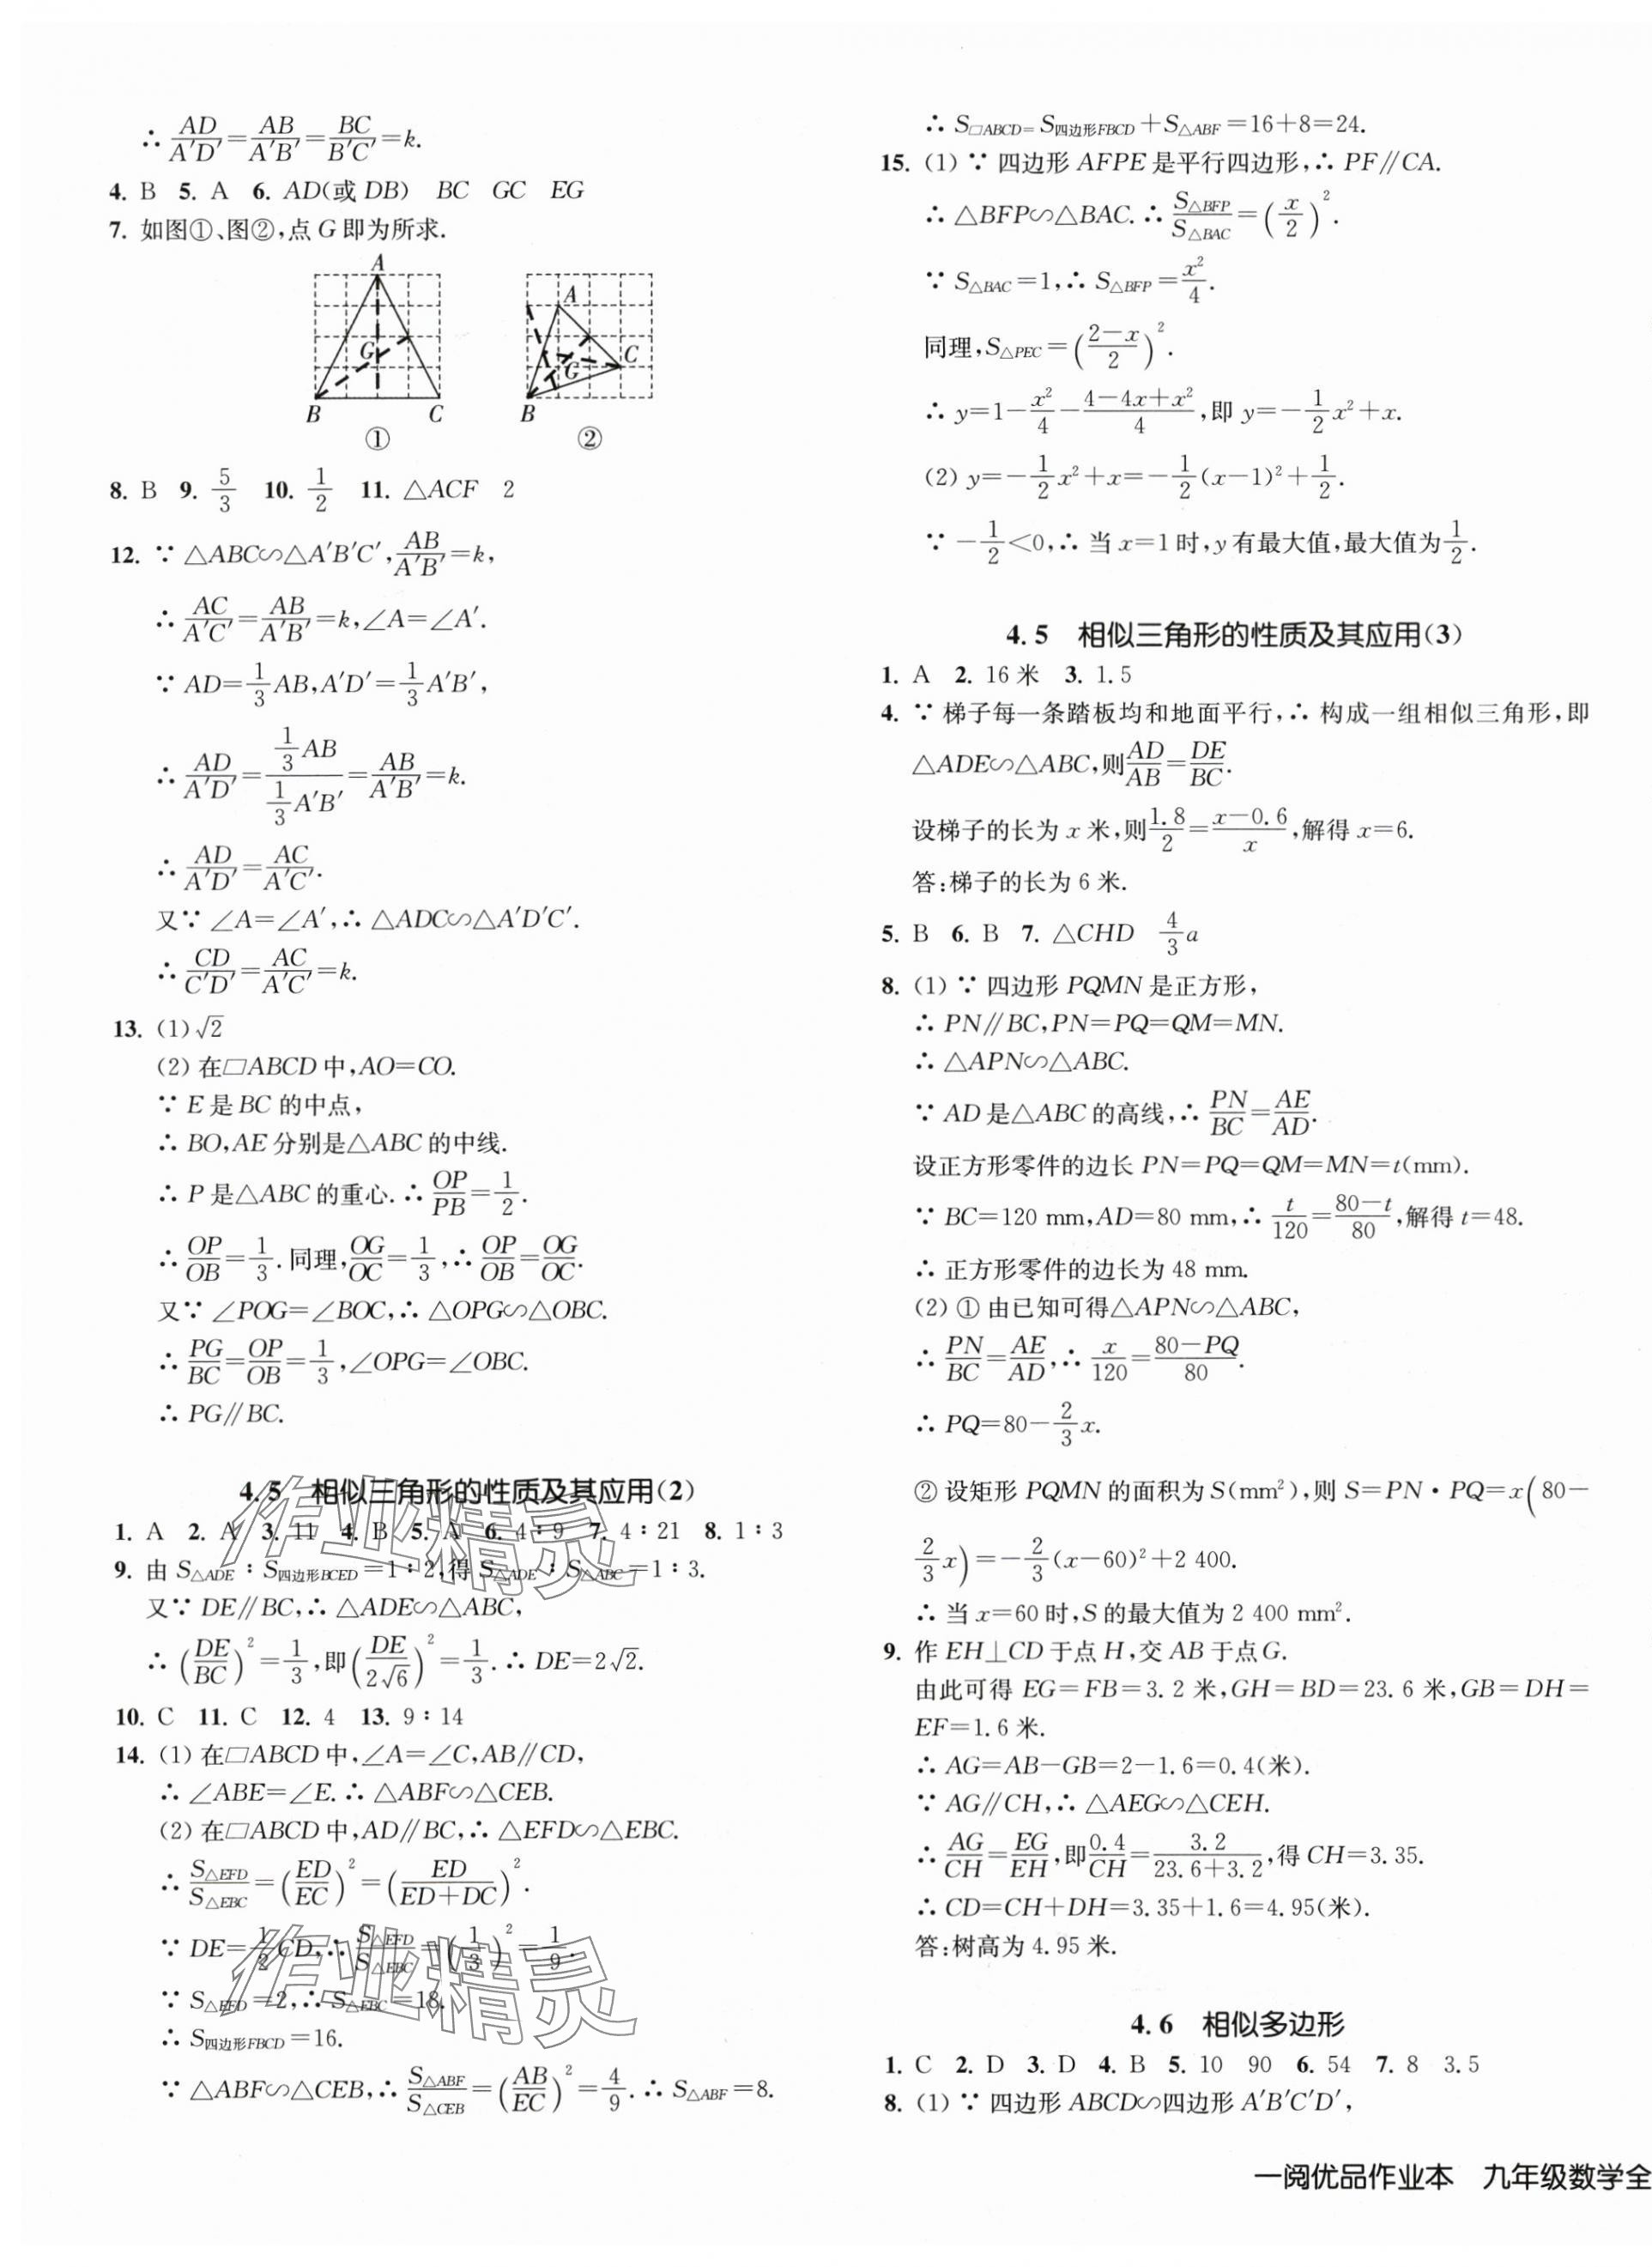 ∴ AD/A′D′=AB/A′B′=BC/B′C′=k.
4. B 5. A 6. AD(或 DB) BC GC EG
7. 如图①、图②,点 G 即为所求.
A
G
B C
①
A
G
C
B
②
8. B 9. 5/3 10. 1/2 11. △ACF 2
12. ∵ △ABC∽△A′B′C′,AB/A′B′=k,
∴ AC/A′C′=AB/A′B′=k,∠A=∠A′.
∵ AD=1/3 AB,A′D′=1/3 A′B′,
∴ AD/A′D′=(1/3 AB)/(1/3 A′B′)=AB/A′B′=k.
∴ AD/A′D′=AC/A′C′.
又∵ ∠A=∠A′,∴ △ADC∽△A′D′C′.
∴ CD/C′D′=AC/A′C′=k.
13. (1)√2
(2) 在▱ABCD 中,AO=CO.
∵ E 是 BC 的中点,
∴ BO,AE 分别是△ABC 的中线.
∴ P 是△ABC 的重心.∴ OP/PB=1/2.
∴ OP/OB=1/3.同理,OG/OC=1/3,∴ OP/OB=OG/OC.
又∵ ∠POG=∠BOC,∴ △OPG∽△OBC.
∴ PG/BC=OP/OB=1/3,∠OPG=∠OBC.
∴ PG∥BC.
4.5 相似三角形的性质及其应用(2)
1. A 2. A 3. 11 4. B 5. A 6. 4∶9 7. 4∶21 8. 1∶3
9. 由 S△ADE∶S四边形BCED=1∶2,得 S△ADE∶S△ABC=1∶3.
又∵ DE∥BC,∴ △ADE∽△ABC,
∴ (DE/BC)²=1/3,即(DE/2√6)²=1/3.∴ DE=2√2.
10. C 11. C 12. 4 13. 9∶14
14. (1) 在▱ABCD 中,∠A=∠C,AB∥CD,
∴ ∠ABE=∠E.∴ △ABF∽△CEB.
(2) 在▱ABCD 中,AD∥BC,∴ △EFD∽△EBC.
∴ S△EFD/S△EBC=(ED/EC)²=(ED/(ED+DC))².
∵ DE=1/2 CD,∴ S△EFD/S△EBC=(1/3)²=1/9.
∵ S△EFD=2,∴ S△EBC=18.
∴ S四边形FBCD=16.
∵ △ABF∽△CEB,∴ S△ABF/S△CEB=(AB/EC)²=4/9.∴ S△ABF=8.
∴ S▱ABCD=S四边形FBCD+S△ABF=16+8=24.
15. (1) ∵ 四边形 AFPE 是平行四边形,∴ PF∥CA.
∴ △BFP∽△BAC.∴ S△BFP/S△BAC=(x/2)².
∵ S△BAC=1,∴ S△BFP=x²/4.
同理,S△PEC=((2−x)/2)².
∴ y=1−x²/4−(4−4x+x²)/4,即 y=−1/2 x²+x.
(2) y=−1/2 x²+x=−1/2 (x−1)²+1/2.
∵ −1/2<0,∴ 当 x=1 时,y 有最大值,最大值为1/2.
4.5 相似三角形的性质及其应用(3)
1. A 2. 16 米 3. 1.5
4. ∵ 梯子每一条踏板均和地面平行,∴ 构成一组相似三角形,即
△ADE∽△ABC,则AD/AB=DE/BC.
设梯子的长为 x 米,则1.8/2=(x−0.6)/x,解得 x=6.
答:梯子的长为 6 米.
5. B 6. B 7. △CHD 4/3 a
8. (1) ∵ 四边形 PQMN 是正方形,
∴ PN∥BC,PN=PQ=QM=MN.
∴ △APN∽△ABC.
∵ AD 是△ABC 的高线,∴ PN/BC=AE/AD.
设正方形零件的边长 PN=PQ=QM=MN=t(mm).
∵ BC=120 mm,AD=80 mm,∴ t/120=(80−t)/80,解得 t=48.
∴ 正方形零件的边长为 48 mm.
(2) ① 由已知可得△APN∽△ABC,
∴ PN/BC=AE/AD,∴ x/120=(80−PQ)/80.
∴ PQ=80−2/3 x.
② 设矩形 PQMN 的面积为 S(mm²),则 S=PN·PQ=x(80−
2/3 x)=−2/3 (x−60)²+2 400.
∴ 当 x=60 时,S 的最大值为 2 400 mm².
9. 作 EH⊥CD 于点 H,交 AB 于点 G.
由此可得 EG=FB=3.2 米,GH=BD=23.6 米,GB=DH=
EF=1.6 米.
∴ AG=AB−GB=2−1.6=0.4(米).
∵ AG∥CH,∴ △AEG∽△CEH.
∴ AG/CH=EG/EH,即0.4/CH=3.2/(23.6+3.2),得 CH=3.35.
∴ CD=CH+DH=3.35+1.6=4.95(米).
答:树高为 4.95 米.
4.6 相似多边形
1. C 2. D 3. D 4. B 5. 10 90 6. 54 7. 8 3.5
8. (1) ∵ 四边形 ABCD∽四边形 A′B′C′D′,
一阅优品作业本 九年级数学全
作业精灵
作业精灵